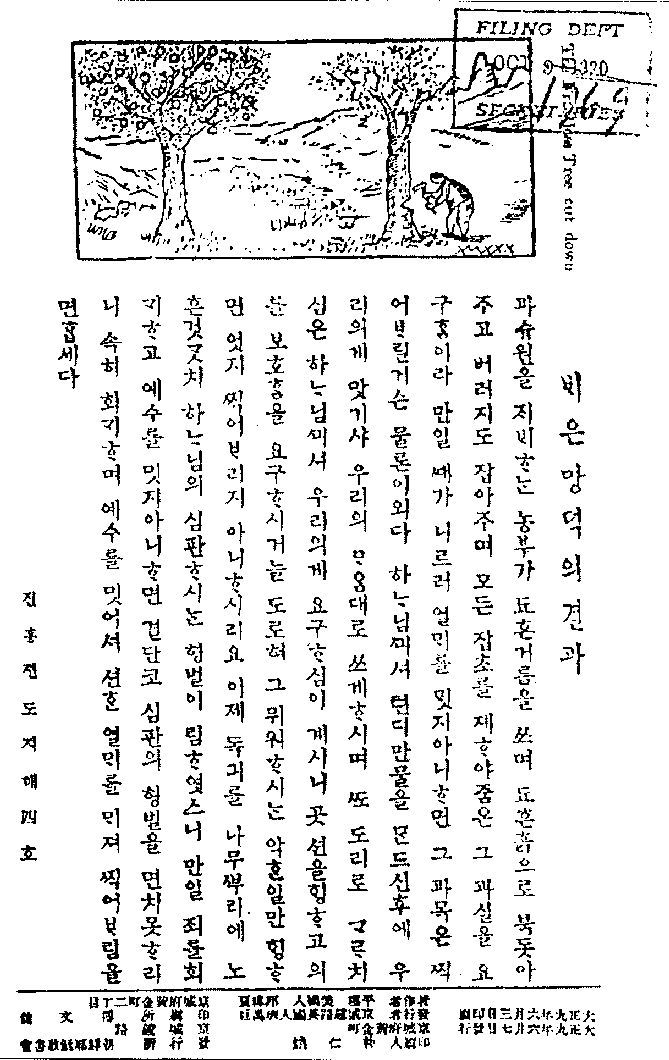 FILING DEPT
OCT 9 1920
Tree cut down
ᄇᆡ은망덕의결과
과슈원을 지ᄇᆡᄒᆞᄂᆞᆫ 농부가 됴흔거름을 쓰며 됴흔흙으로 북돗아
주고 버러지도 잡아주며 모든 잡초를 제ᄒᆞ야줌은 그 과실을 요
구홈이라 만일 ᄯᅢ가 니르러 열ᄆᆡ를 ᄆᆡᆺ지아니ᄒᆞ면 그 과목은 찍
어ᄇᆞ릴거슨 물론이외다 하ᄂᆞ님ᄭᅴ셔 텬디만물을 ᄆᆞᆫ드신후에 우
리의게 맛기샤 우리의 ᄆᆞ음대로 쓰게ᄒᆞ시며 ᄯᅩ 도리로 ᄀᆞᄅᆞ치
심은 하ᄂᆞ님ᄭᅴ셔 우리의게 요구ᄒᆞ심이 계시니 곳 션을ᄒᆡᆼᄒᆞ고 의
를 보호홈을 요구ᄒᆞ시거늘 도로혀 그 뮈워ᄒᆞ시ᄂᆞᆫ 악ᄒᆞᆫ일만 ᄒᆡᆼᄒᆞ
면 엇지 찍어ᄇᆞ리지 아니ᄒᆞ시리요 이제 독긔를 나무ᄲᅮ리에 노
흔것ᄀᆞᆺ치 하ᄂᆞ님의 심판ᄒᆞ시ᄂᆞᆫ 형벌이 림ᄒᆞ엿스니 만일 죄를회
ᄀᆡᄒᆞ고 예수를 밋지아니ᄒᆞ면 결단코 심판의 형벌을 면치못ᄒᆞ리
니 속히 회ᄀᆡᄒᆞ며 예수를 밋어셔 션ᄒᆞᆫ 열ᄆᆡ를 ᄆᆡ져 찍어ᄇᆞ림을
면ᄒᆞᆸ세다
진흥젼도지뎨四호
大正九年六月三日印刷
大正九年六月七日發行